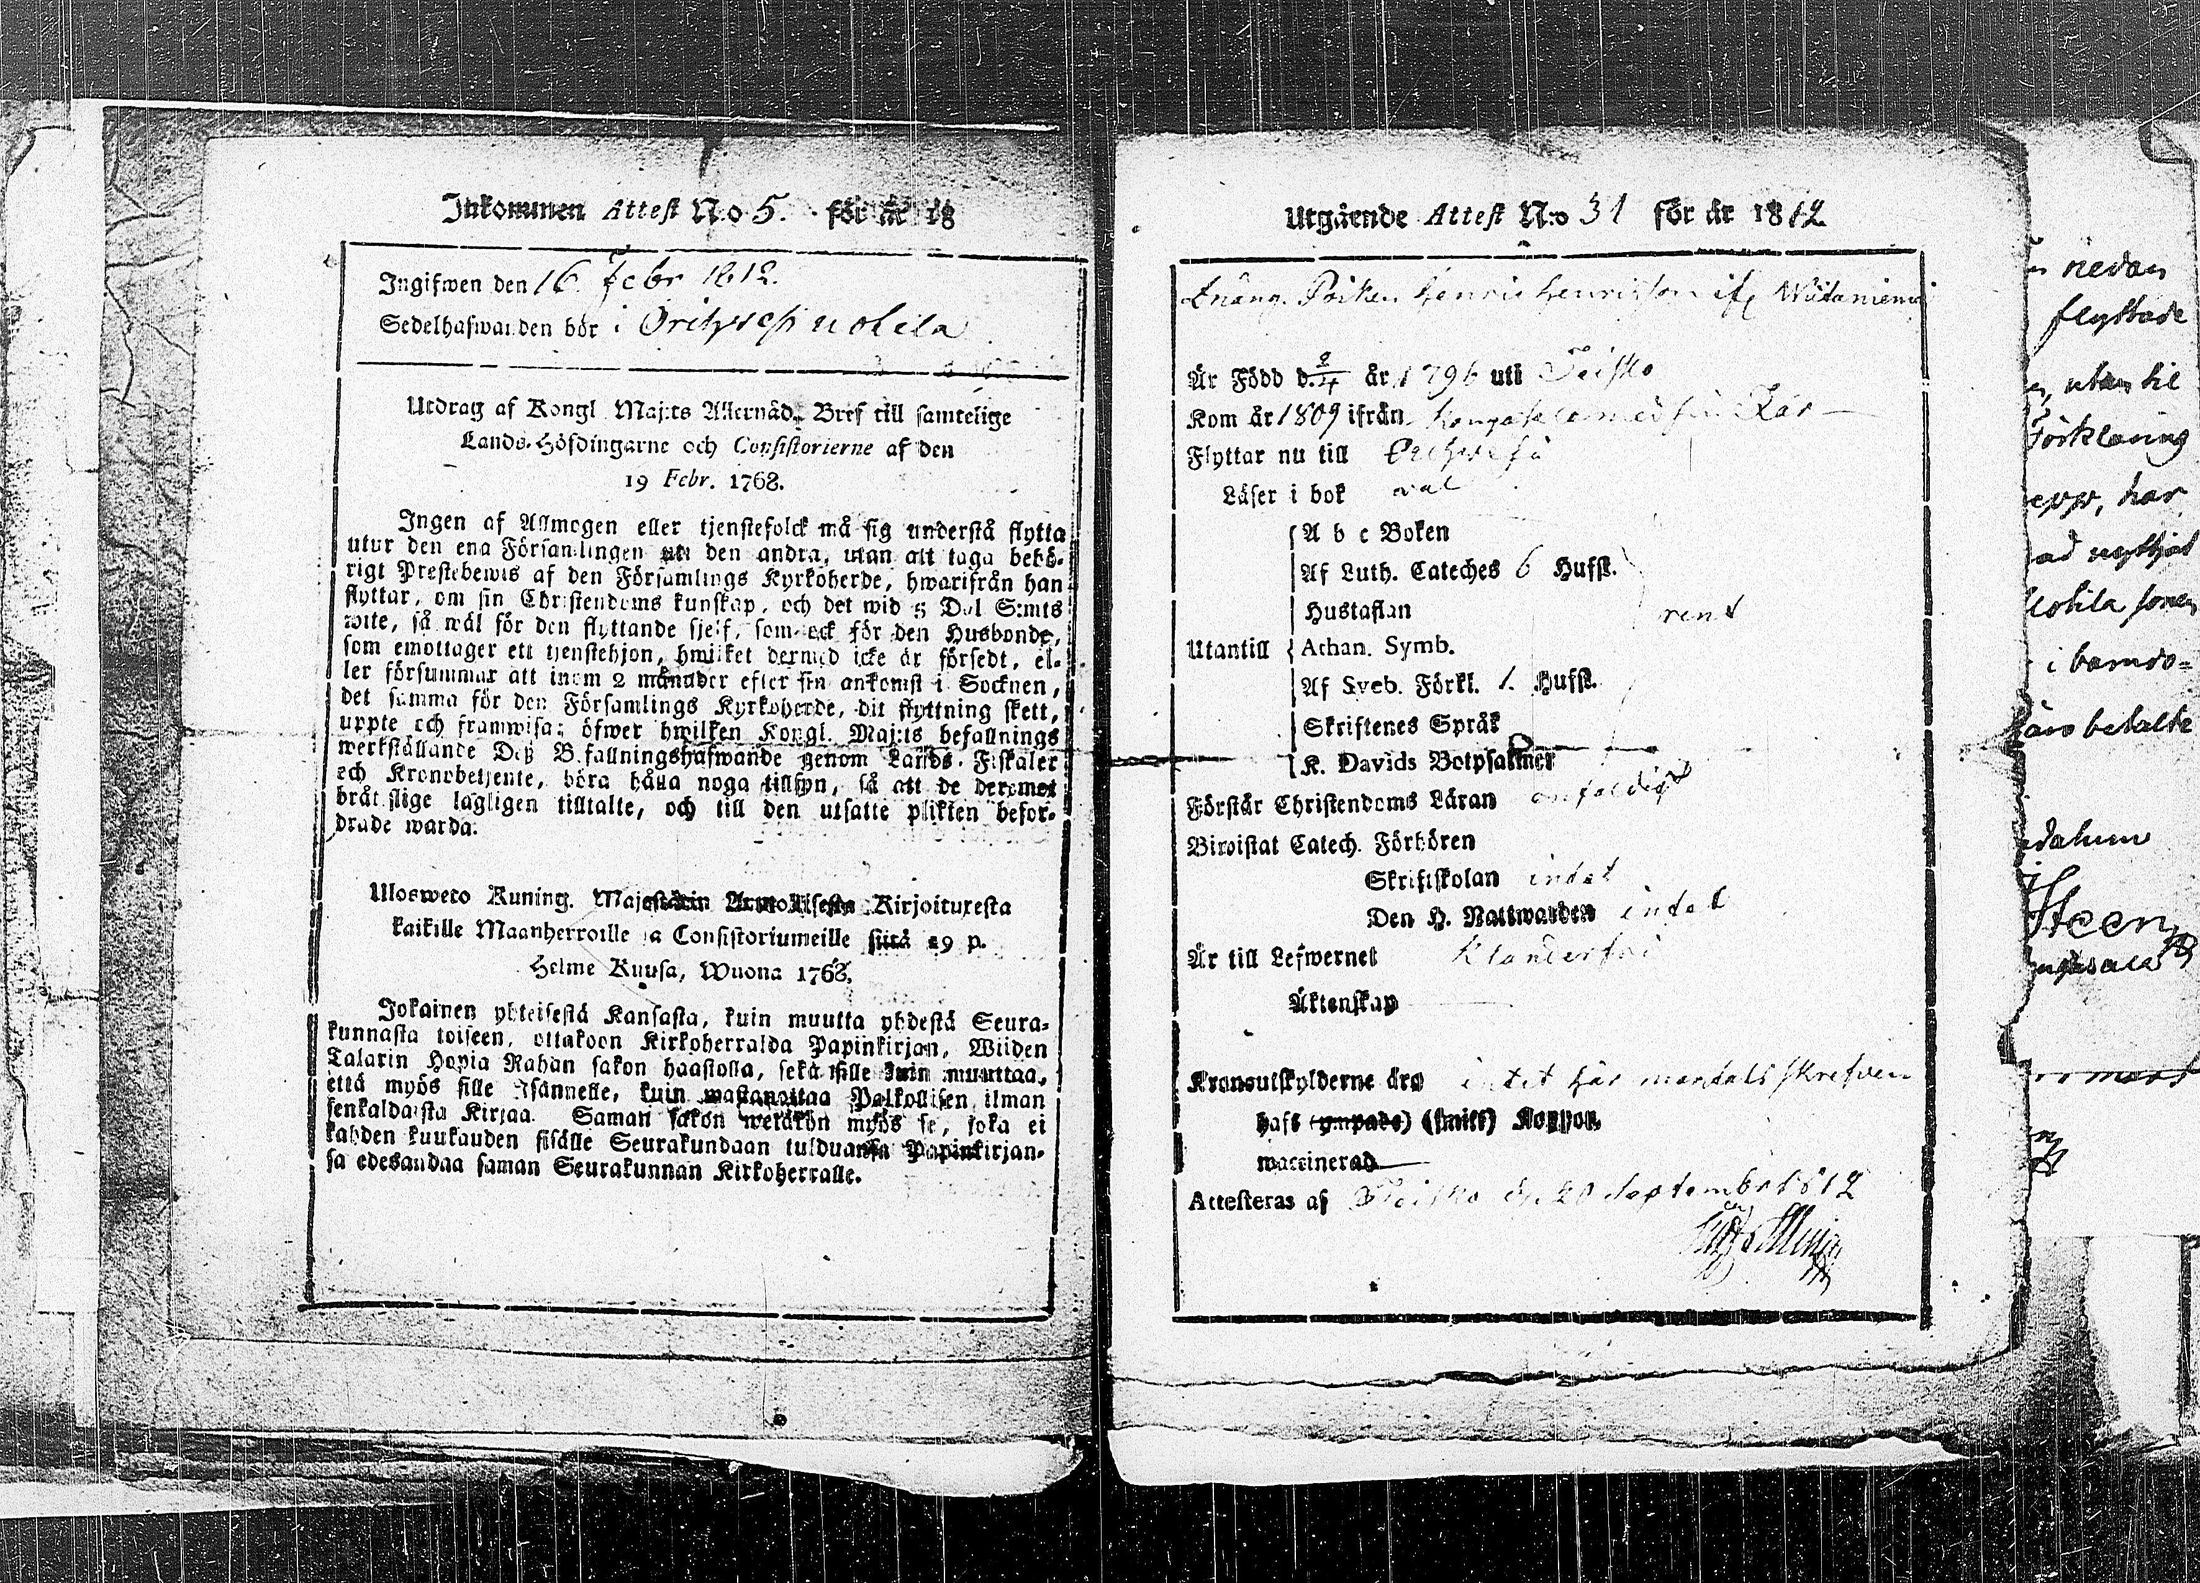 Inkommen Attest N:o 5. för år 18
Ingifwen den 16 Febr 1812.
Sedelhafwanden bör i
Utdrag af Kongl Maj:ts Allernåd. Bref till samtelige
Lands-Höfdingarne och Consistorierne af den
19 Febr. 1768.
Ingen af Allmogen eller tjenstefolck må sig understå flytta
utur den ena Församlingen uti den andra, utan att taga behö-
rigt Prestebewis af den Församlings Kyrkoherde, hwarifrån han
flyttar, om sin Christendoms kunskap, och det wid 5 Dal S:mts
wite, så wäl för den flyttande sjelf, som ock för den Husbonde,
som emottager ett tjenstehjon, hwilket dermed icke är försedt, el-
ler försummar att inom 2 månader efter sin ankomst i Socknen,
det samma för den Församlings Kyrkoherde, dit flyttning skett,
uppte och framwisa; öfwer hwilken Kongl. Maj:ts befallnings
werkställande Deß Befallningshafwande genom Lands-Fiskaler
och Kronobetjente, böra hålla noga tillsyn, så att de deremot
bråtslige lagligen tilltalte, och till den utsatte plikten befor-
drade warda.
Ulosweto Kuning. Majestätin Armollisesta Kirjoituresta
kaikille Maanherroille ja Consistoriumeille siitä 19 p.
Helme Kuusa, Wuona 1768.
Jokainen yhteisestä Kansasta, kuin muutta yhdestä Seura-
kunnasta toiseen, ottakoon Kirkoherralda Papinkirjan, Wiiden
Talarin Hopia Rahan sakon haastolla, sekä sille kuin muuttaa,
että myös sille Isännelle, kuin wastanottaa Palkollisen ilman
senkaldaista Kirjaa. Saman sakon wetäkön myös se, joka ei
kahden kuukauden sisälle Seurakundaan tulduansa Papinkirjan-
sa edesandaa saman Seurakunnan Kirkoherralle.
Utgående Attest N:o 31 för år 1812
Henric Henricsson
Är Född d. 2/4 år 1796 uti Teisko
Kom år 1809 ifrån
Flyttar nu till
Läser i bok wäl
A b c Boken
Af Luth. Cateches 6 Hufst.
Hustaflan rent
Utantill Athan. Symb.
Af Sveb. Förkl. 1. Hufst.
Skriftenes Språk
K. Davids Botpsalmer
Förstår Christendoms Läran enfaldigt
Biwistat Catech. Förhören
Skriftskolan intet
Den H. Nattwarden intet
Är till Lefwernet klanderfri
Äktenskap
Kronoutskylderne äro intet här mantalsskrefven
haft (ympade) (smitt) Koppor
waccinerad
Attesteras af Teisko d. 20 September 1812
nedan
flyttade
utan til
Förklaring
har
nyttjat
i barndo-
betalte
Steen